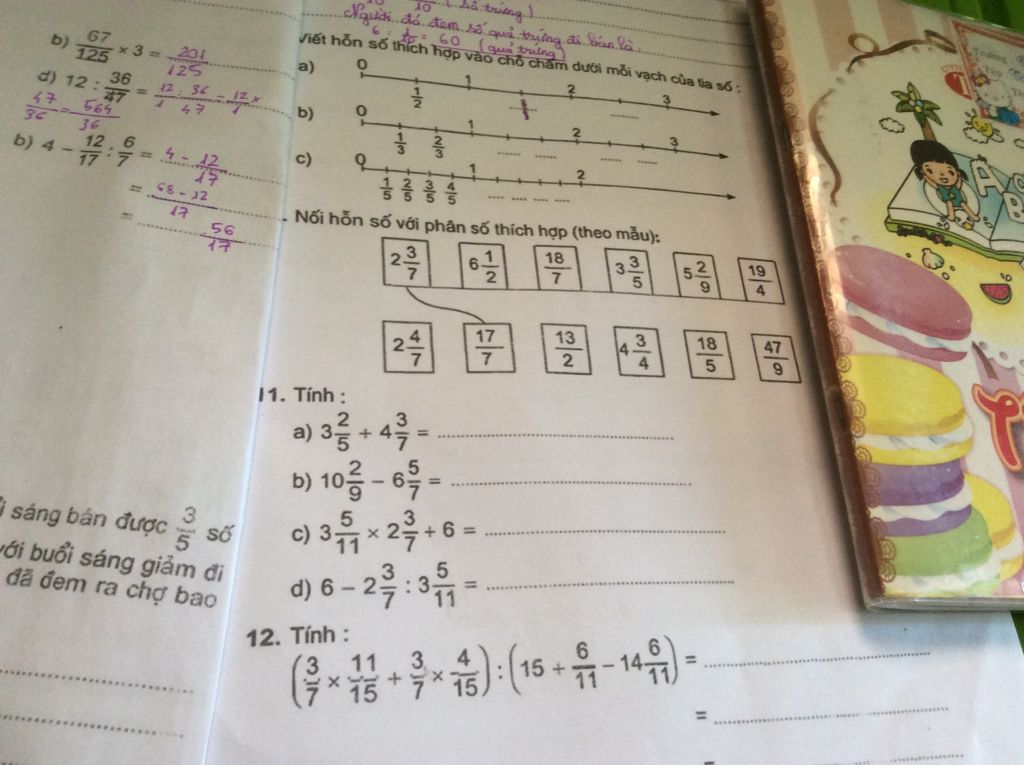 b) 67/125 × 3 = 201/125
d) 12 : 36/47 = 12/1 : 36/47 = 12/1 ×
47/36 = 564/36
b) 4 − 12/17 : 6/7 = 4 - 12/17
= 68 - 12/17
= 56/17
i sáng bán được 3/5 số
với buổi sáng giảm đi
đã đem ra chợ bao
10 (Số trứng)
Người đó đem số quả trứng đi bán là
= 60 (quả trứng)
Viết hỗn số thích hợp vào chỗ chấm dưới mỗi vạch của tia số :
a) 0 1/2 1 ........ 2 ........ 3
b) 0 1/3 2/3 1 ...... ...... 2 ...... ...... 3
c) 0 1/5 2/5 3/5 4/5 1 .... .... .... .... 2
Nối hỗn số với phân số thích hợp (theo mẫu):
2 3/7 6 1/2 18/7 3 3/5 5 2/9 19/4
2 4/7 17/7 13/2 4 3/4 18/5 47/9
11. Tính :
a) 3 2/5 + 4 3/7 = ........................................
b) 10 2/9 − 6 5/7 = ........................................
c) 3 5/11 × 2 3/7 + 6 = ........................................
d) 6 − 2 3/7 : 3 5/11 = ........................................
12. Tính :
(3/7 × 11/15 + 3/7 × 4/15) : (15 + 6/11 − 14 6/11) = ........................................
= ........................................